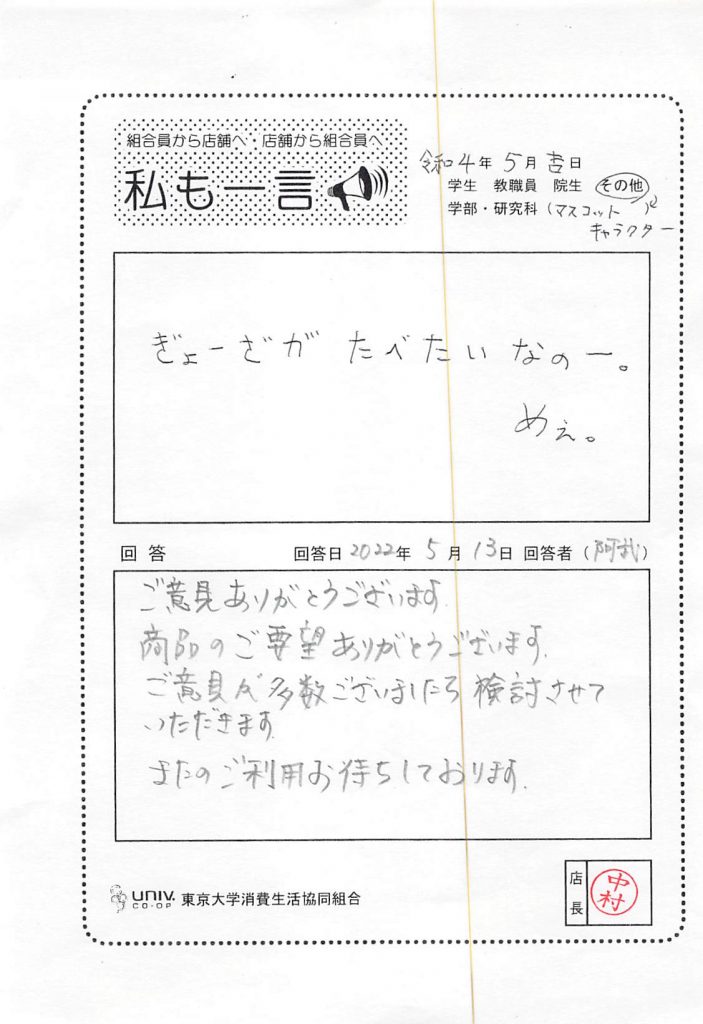 組合員から店舗へ・店舗から組合員へ
私も一言
令和4年5月吉日
学生 教職員 院生 その他
学部・研究科(マスコット
キャラクター)
ぎょーざが たべたい なのー。
めぇ。
回答 回答日2022年5月13日 回答者(阿我)
ご意見ありがとうございます。
商品のご要望ありがとうございます。
ご意見が多数ございましたら検討させて
いただきます。
またのご利用お待ちしております。
UNIV. CO-OP 東京大学消費生活協同組合
店長 中村